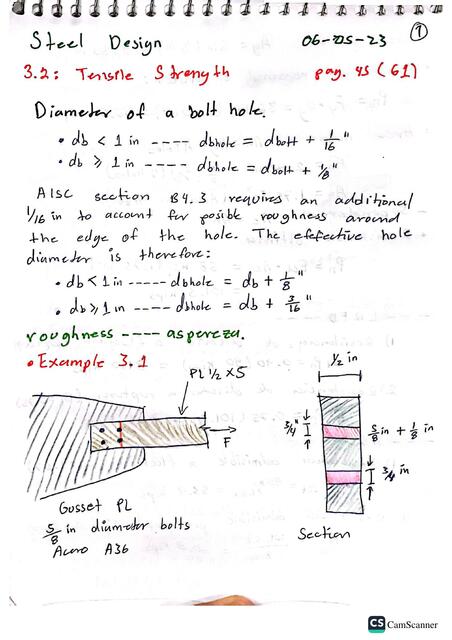 Steel Design 06-05-23 1
3.2: Tensile Strength pag. 45 (61)
Diameter of a bolt hole.
• db < 1 in ---- dbhole = dbolt + 1/16"
• db ≥ 1 in ---- dbhole = dbolt + 1/8"
AISC section B4.3 requires an additional
1/16 in to account for posible roughness around
the edge of the hole. The efefective hole
diameter is therefore:
• db < 1 in ----- dbhole = db + 1/8"
• db ≥ 1 in ---- dbhole = db + 3/16"
roughness ---- aspereza.
• Example 3.1
1/2 in
PL 1/2 x 5
3/4"
5/8 in + 1/8 in
F
3/4 in
Gusset PL
5/8 in diameter bolts
Acero A36
Section
CS CamScanner